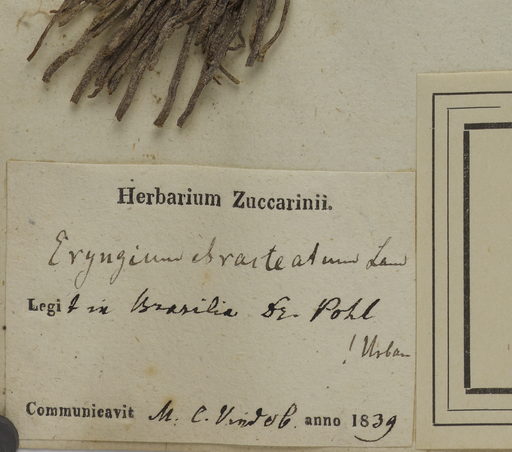 Herbarium Zuccarinii.
Eryngium ebracteatum Lam
Legit in Brasilia Dr. Pohl
! Urban
Communicavit M. C. Vindob. anno 1839